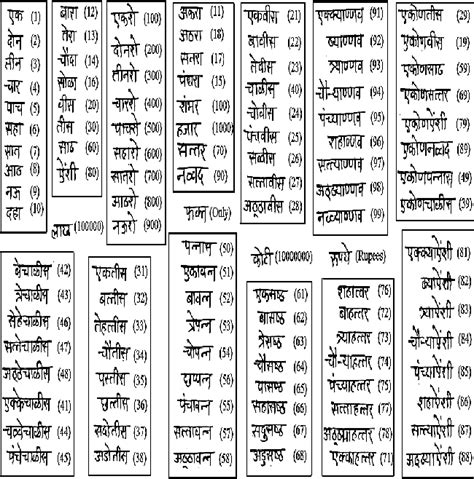 एक (1)
दोन (2)
तीन (3)
चार (4)
पाच (5)
सहा (6)
सात (7)
आठ (8)
नऊ (9)
दहा (10)
बारा (12)
तेरा (13)
चौदा (14)
सोळा (16)
वीस (20)
तीस (30)
साठ (60)
ऐंशी (80)
लाख (100000)
एकशे (100)
दोनशे (200)
तीनशे (300)
चारशे (400)
पाचशे (500)
सहाशे (600)
सातशे (700)
आठशे (800)
नऊशे (900)
अकरा (11)
अठरा (18)
सतरा (17)
पंधरा (15)
शंभर (100)
हजार (1000)
सत्तर (70)
नव्वद (90)
फक्त (Only)
एकवीस (21)
बावीस (22)
तेवीस (23)
चाळीस (40)
चोवीस (24)
पंचवीस (25)
सव्वीस (26)
सत्तावीस (27)
अठ्ठावीस (28)
एक्क्याण्णव (91)
ब्याण्णव (92)
त्र्याण्णव (93)
चौऱ्याण्णव (94)
पंच्याण्णव (95)
शहाण्णव (96)
सत्त्याण्णव (97)
अठ्ठ्याण्णव (98)
नव्व्याण्णव (99)
एकोणतीस (29)
एकोणवीस (19)
एकोणसाठ (59)
एकोणसत्तर (69)
एकोणऐंशी (79)
एकोणनव्वद (89)
एकोणपन्नास (49)
एकोणचाळीस (39)
बेचाळीस (42)
त्रेचाळीस (43)
सेहेचाळीस (46)
सत्तेचाळीस (47)
अठ्ठेचाळीस (48)
एक्केचाळीस (41)
चव्वेचाळीस (44)
पंचेचाळीस (45)
एकतीस (31)
बत्तीस (32)
तेहत्तीस (33)
चौतीस (34)
पस्तीस (35)
छत्तीस (36)
सदोतीस (37)
अडोतीस (38)
पन्नास (50)
एकावन्न (51)
बावन्न (52)
त्रेपन्न (53)
चोपन्न (54)
छप्पन्न (56)
पंचावन्न (55)
सत्तावन्न (57)
अठ्ठावन्न (58)
कोटी (10000000)
रुपये (Rupees)
एकसष्ठ (61)
बासष्ठ (62)
त्रेसष्ठ (63)
चौसष्ठ (64)
पासष्ठ (65)
सहासष्ठ (66)
सदुसष्ठ (67)
अडुसष्ठ (68)
शहात्तर (76)
बाहत्तर (72)
त्र्याहत्तर (73)
चौऱ्याहत्तर (74)
पंच्याहत्तर (75)
सत्त्याहत्तर (77)
अठ्ठ्याहत्तर (78)
एक्काहत्तर (71)
एक्क्याऐंशी (81)
ब्याऐंशी (82)
त्र्याऐंशी (83)
चौऱ्याऐंशी (84)
पंच्याऐंशी (85)
शहाऐंशी (86)
सत्त्याऐंशी (87)
अठ्ठ्याऐंशी (88)